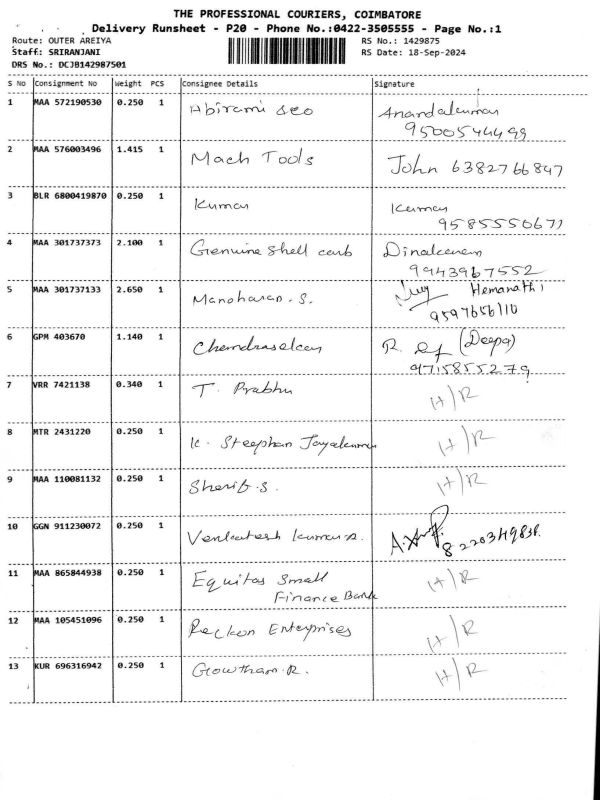 THE PROFESSIONAL COURIERS, COIMBATORE
Delivery Runsheet - P20 - Phone No.:0422-3505555 - Page No.:1
Route: OUTER AREIYA RS No.: 1429875
Staff: SRIRANJANI RS Date: 18-Sep-2024
DRS No.: DCJB142987501
S No Consignment No Weight PCS Consignee Details Signature
1 MAA 572190530 0.250 1 Abirami seo Anandakumar
9500544499
2 MAA 576003496 1.415 1 Mach Tools John 6382766847
3 BLR 6800419870 0.250 1 Kumar Kumar
9585550677
4 MAA 301737373 2.100 1 Genuine Shell carb Dinakaran
9943967552
5 MAA 301737133 2.650 1 Manoharan. S. Hemanathi
9597656110
6 GPM 403670 1.140 1 Chandrasekar R. (Deepa)
9715855279
7 VRR 7421138 0.340 1 T. Prabhu H/R
8 MTR 2431220 0.250 1 K. Steephan Jayakumar H/R
9 MAA 110081132 0.250 1 Sherif.S. H/R
10 GGN 911230072 0.250 1 Venkatesh Kumar.
11 MAA 865844938 0.250 1 Equitas Small H/R
Finance Bank
12 MAA 105451096 0.250 1 Reckon Enterprises H/R
13 KUR 696316942 0.250 1 Gowtham.R. H/R